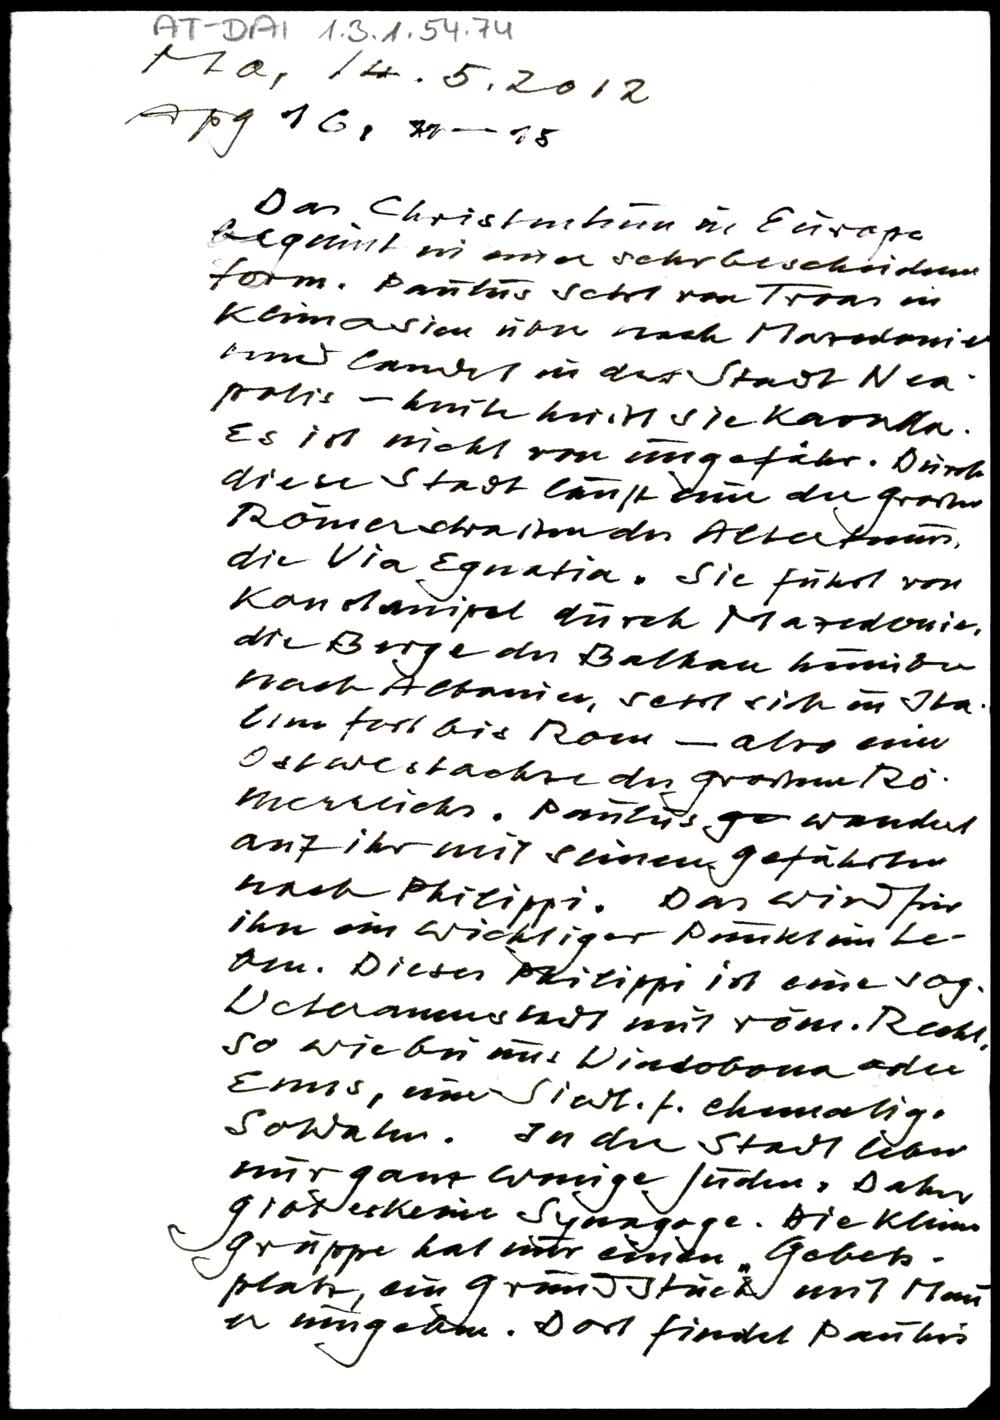 AT-DAI 1.3.1.54.74
Mo, 14.5.2012
Apg 16, 11–15
Das Christentum in Europa
beginnt in einer sehr bescheidenen
Form. Paulus setzt von Troas in
Kleinasien über nach Mazedonien
und landet in der Stadt Nea-
polis – heute heisst sie Kavalla.
Es ist nicht von ungefähr. Durch
diese Stadt läuft eine der grossen
Römerstrassen des Altertums,
die Via Egnatia. Sie führt von
Konstanipel durch Mazedonien,
die Berge des Balkan hinüber
nach Albanien, setzt sich in Ita-
lien fort bis Rom – also eine
Ostwestachse des grossen Rö-
merreichs. Paulus wandert
auf ihr mit seinen Gefährten
nach Philippi. Das wird für
ihn ein wichtiger Punkt im Le-
ben. Dieses Philippi ist eine sog.
Veteranenstadt mit röm. Recht,
so wie bei uns Vindobona oder
Enns, eine Siedl. f. ehemalige
Soldaten. In der Stadt leben
nur ganz wenige Juden. Daher
gibt es keine Synagoge. Die kleine
Gruppe hat nur einen „Gebets-
platz", ein Grundstück mit Mau
er umgeben. Dort findet Paulus